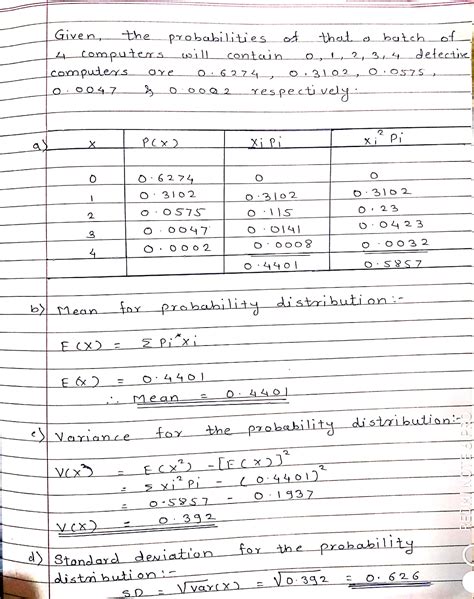 Given, the probabilities of that a batch of
4 computers will contain 0, 1, 2, 3, 4 defective
computers are 0.6274, 0.3102, 0.0575,
0.0047 & 0.0002 respectively.
a) x P(x) xi Pi xi² Pi
0 0.6274 0 0
1 0.3102 0.3102 0.3102
2 0.0575 0.115 0.23
3 0.0047 0.0141 0.0423
4 0.0002 0.0008 0.0032
0.4401 0.5857
b) Mean for probability distribution :-
E(X) = Σ Pi*xi
E(X) = 0.4401
∴ Mean = 0.4401
c) Variance for the probability distribution:-
V(X²) = E(X²) - [E(X)]²
= Σ xi² Pi - (0.4401)²
= 0.5857 - 0.1937
V(X) = 0.392
d) Standard deviation for the probability
distribution :-
S.D = √var(x) = √0.392 = 0.626